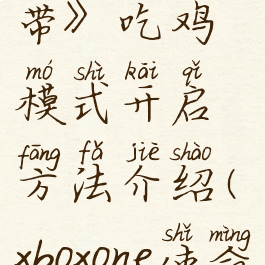 带》吃鸡
mó shì kāi qǐ
模式开启
fāng fǎ jiè shào
方法介绍(
shǐ mìng
xboxone使命